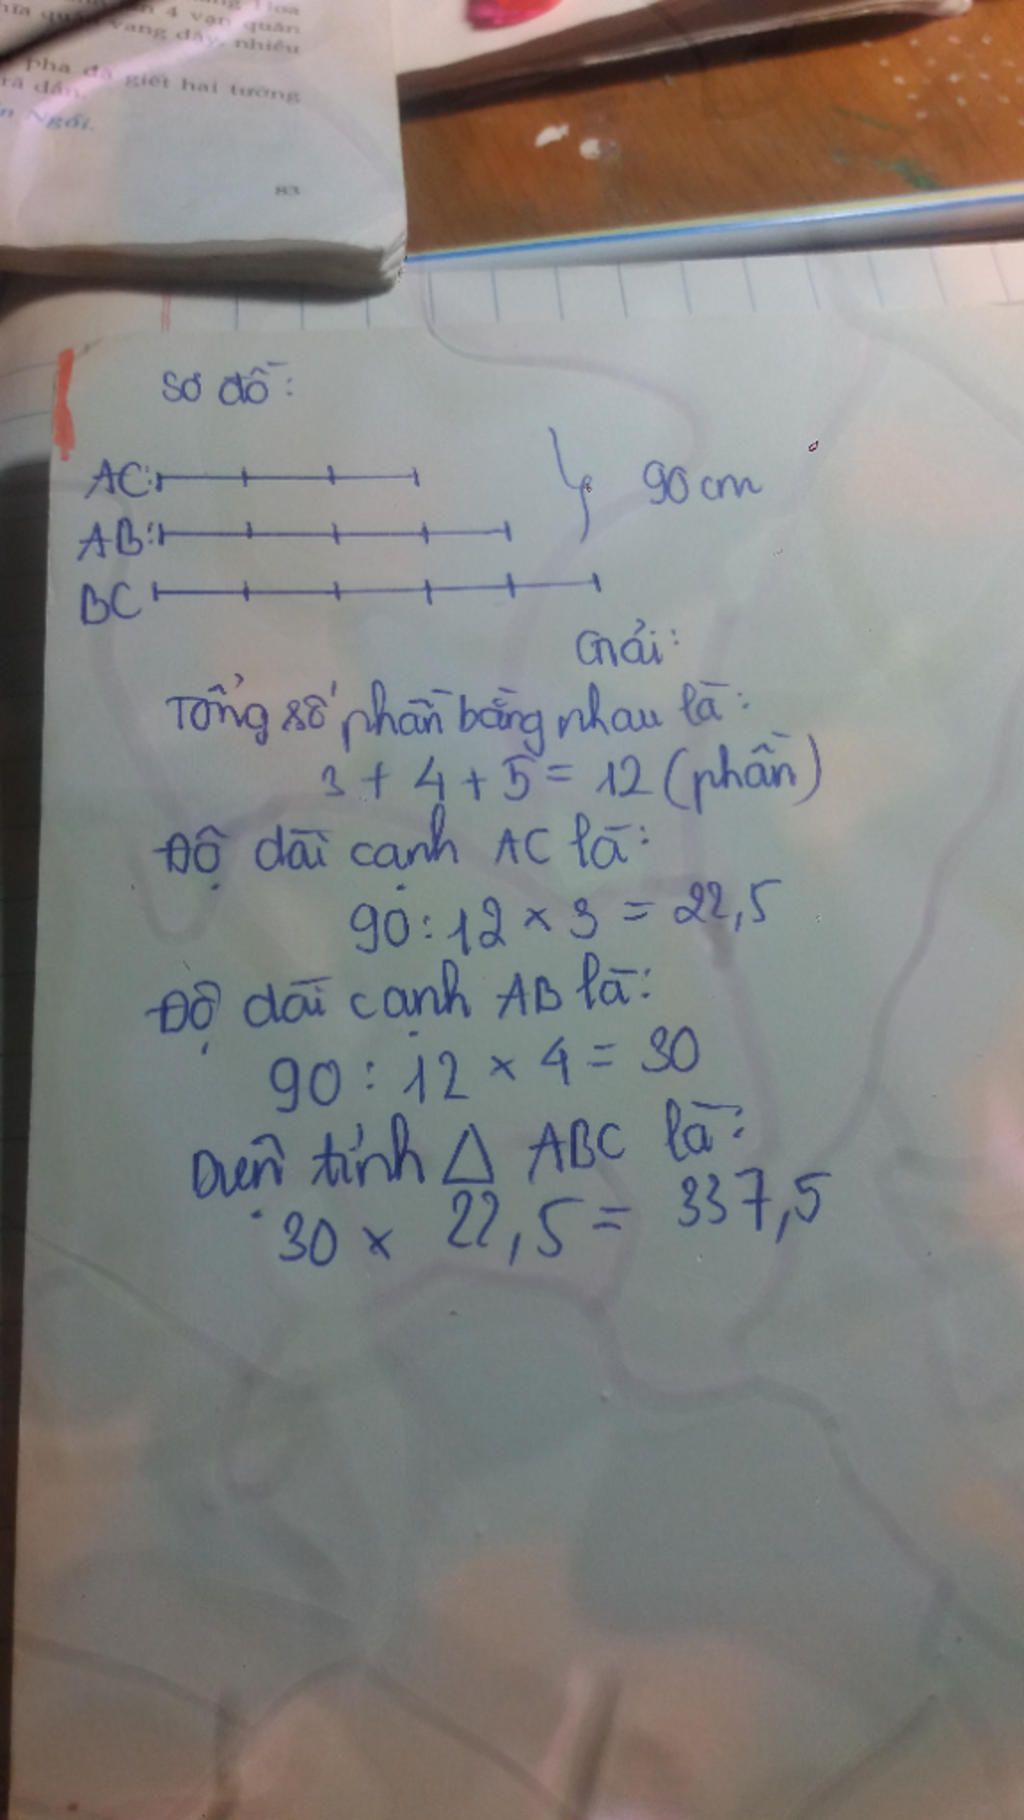 4 vạn quân
vang dậy, nhiều
pha đã giết hai tướng
rã dần.
Ngỗi.
83
Sơ đồ:
AC:
90 cm
AB:
BC
Giải:
Tổng số phần bằng nhau là:
3 + 4 + 5 = 12 (phần)
Độ dài cạnh AC là:
90 : 12 × 3 = 22,5
Độ dài cạnh AB là:
90 : 12 × 4 = 30
Diện tính △ ABC là:
30 × 22,5 = 337,5